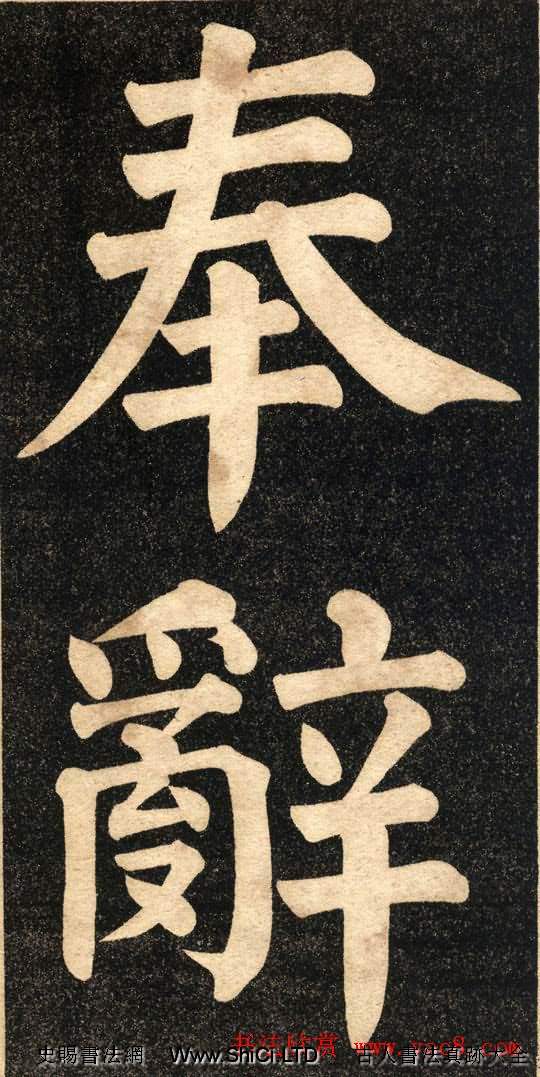 奉
辭
书法欣赏 www.yac8.com
史賜書法網 Www.ShiCi.LTD 古人書法真跡大全